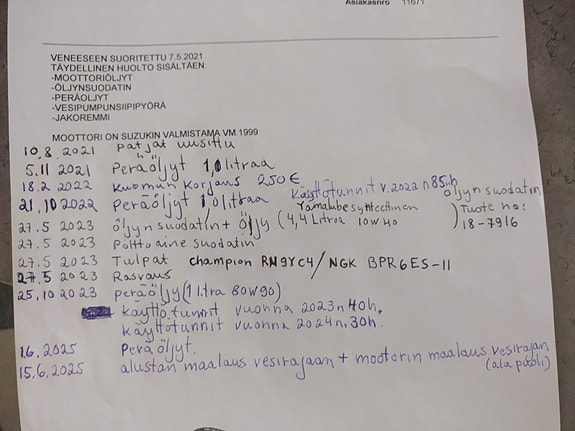 Asiakasnro 11671
VENEESEEN SUORITETTU 7.5.2021
TÄYDELLINEN HUOLTO SISÄLTÄEN:
-MOOTTORIÖLJYT
-ÖLJYNSUODATIN
-PERÄOLJYT
-VESIPUMPUNSIIPIPYÖRÄ
-JAKOREMMI
MOOTTORI ON SUZUKIN VALMISTAMA VM.1999
10.8.2021 patjat uusittu
5.11 2021 Peräöljyt 1,0 litraa
18.2 2022 Kuomun korjaus 250 €
Käyttötunnit v. 2022 n 85.h
21.10 2022 peräöljyt 1,0 litraa
27.5 2023 öljyn suodatin + öljy (4,4 Litraa Yamalube synteettinen 10w40) öljyn suodatin, Tuote no: 18-7916
27.5 2023 Polttoaine suodatin
27.5 2023 Tulpat champion RN9YC4/NGK BPR6ES-11
27.5 2023 Rasvaus
25.10 2023 peräöljy (1 litra 80W90)
käyttötunnit vuonna 2023 n 40h.
käyttötunnit vuonna 2024 n. 30h.
1.6.2025 Peräöljyt.
15.6.2025 alustan maalaus vesirajaan + mootorin maalaus vesirajan (ala puoli)